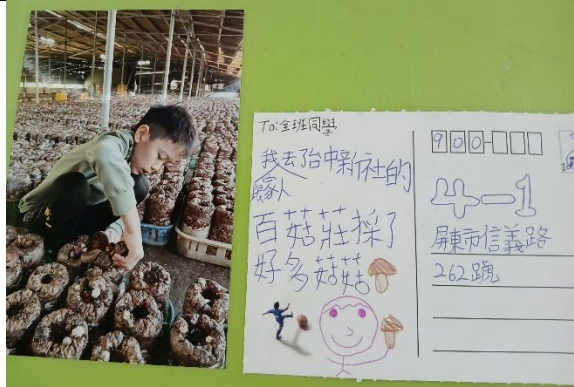 To:全班同學
我去台中新社的
百菇莊採了
好多菇菇
900
4-1
屏東市信義路
262號